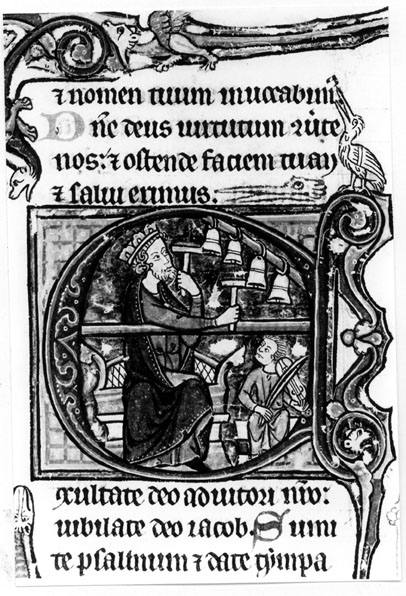 ⁊ nomen tuum inuocabim᷒
Dñe deus uirtutum ꝯu̾te
nos: ⁊ ostende faciem tuaꝫ
⁊ salui erimus.
Exultate deo adiutori nr̄o:
iubilate deo iacob. Sumi
te psalmum ⁊ date tẏmpa